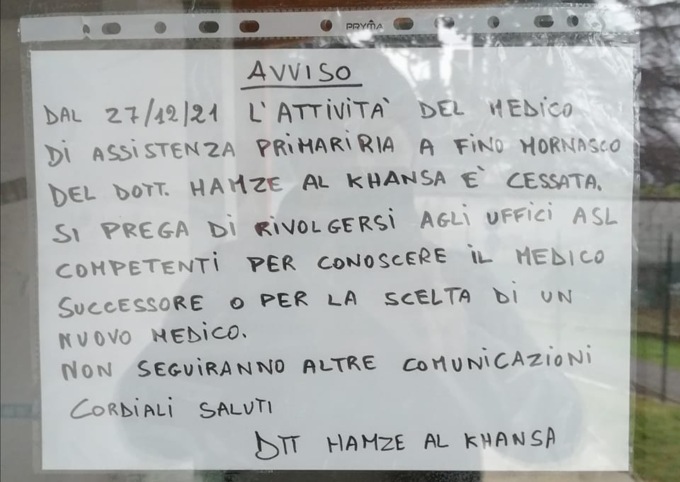 PRYMA
AVVISO
DAL 27/12/21 L'ATTIVITA' DEL MEDICO
DI ASSISTENZA PRIMARIRIA A FINO MORNASCO
DEL DOTT. HAMZE AL KHANSA E' CESSATA.
SI PREGA DI RIVOLGERSI AGLI UFFICI ASL
COMPETENTI PER CONOSCERE IL MEDICO
SUCCESSORE O PER LA SCELTA DI UN
NUOVO MEDICO.
NON SEGUIRANNO ALTRE COMUNICAZIONI
CORDIALI SALUTI
DTT HAMZE AL KHANSA